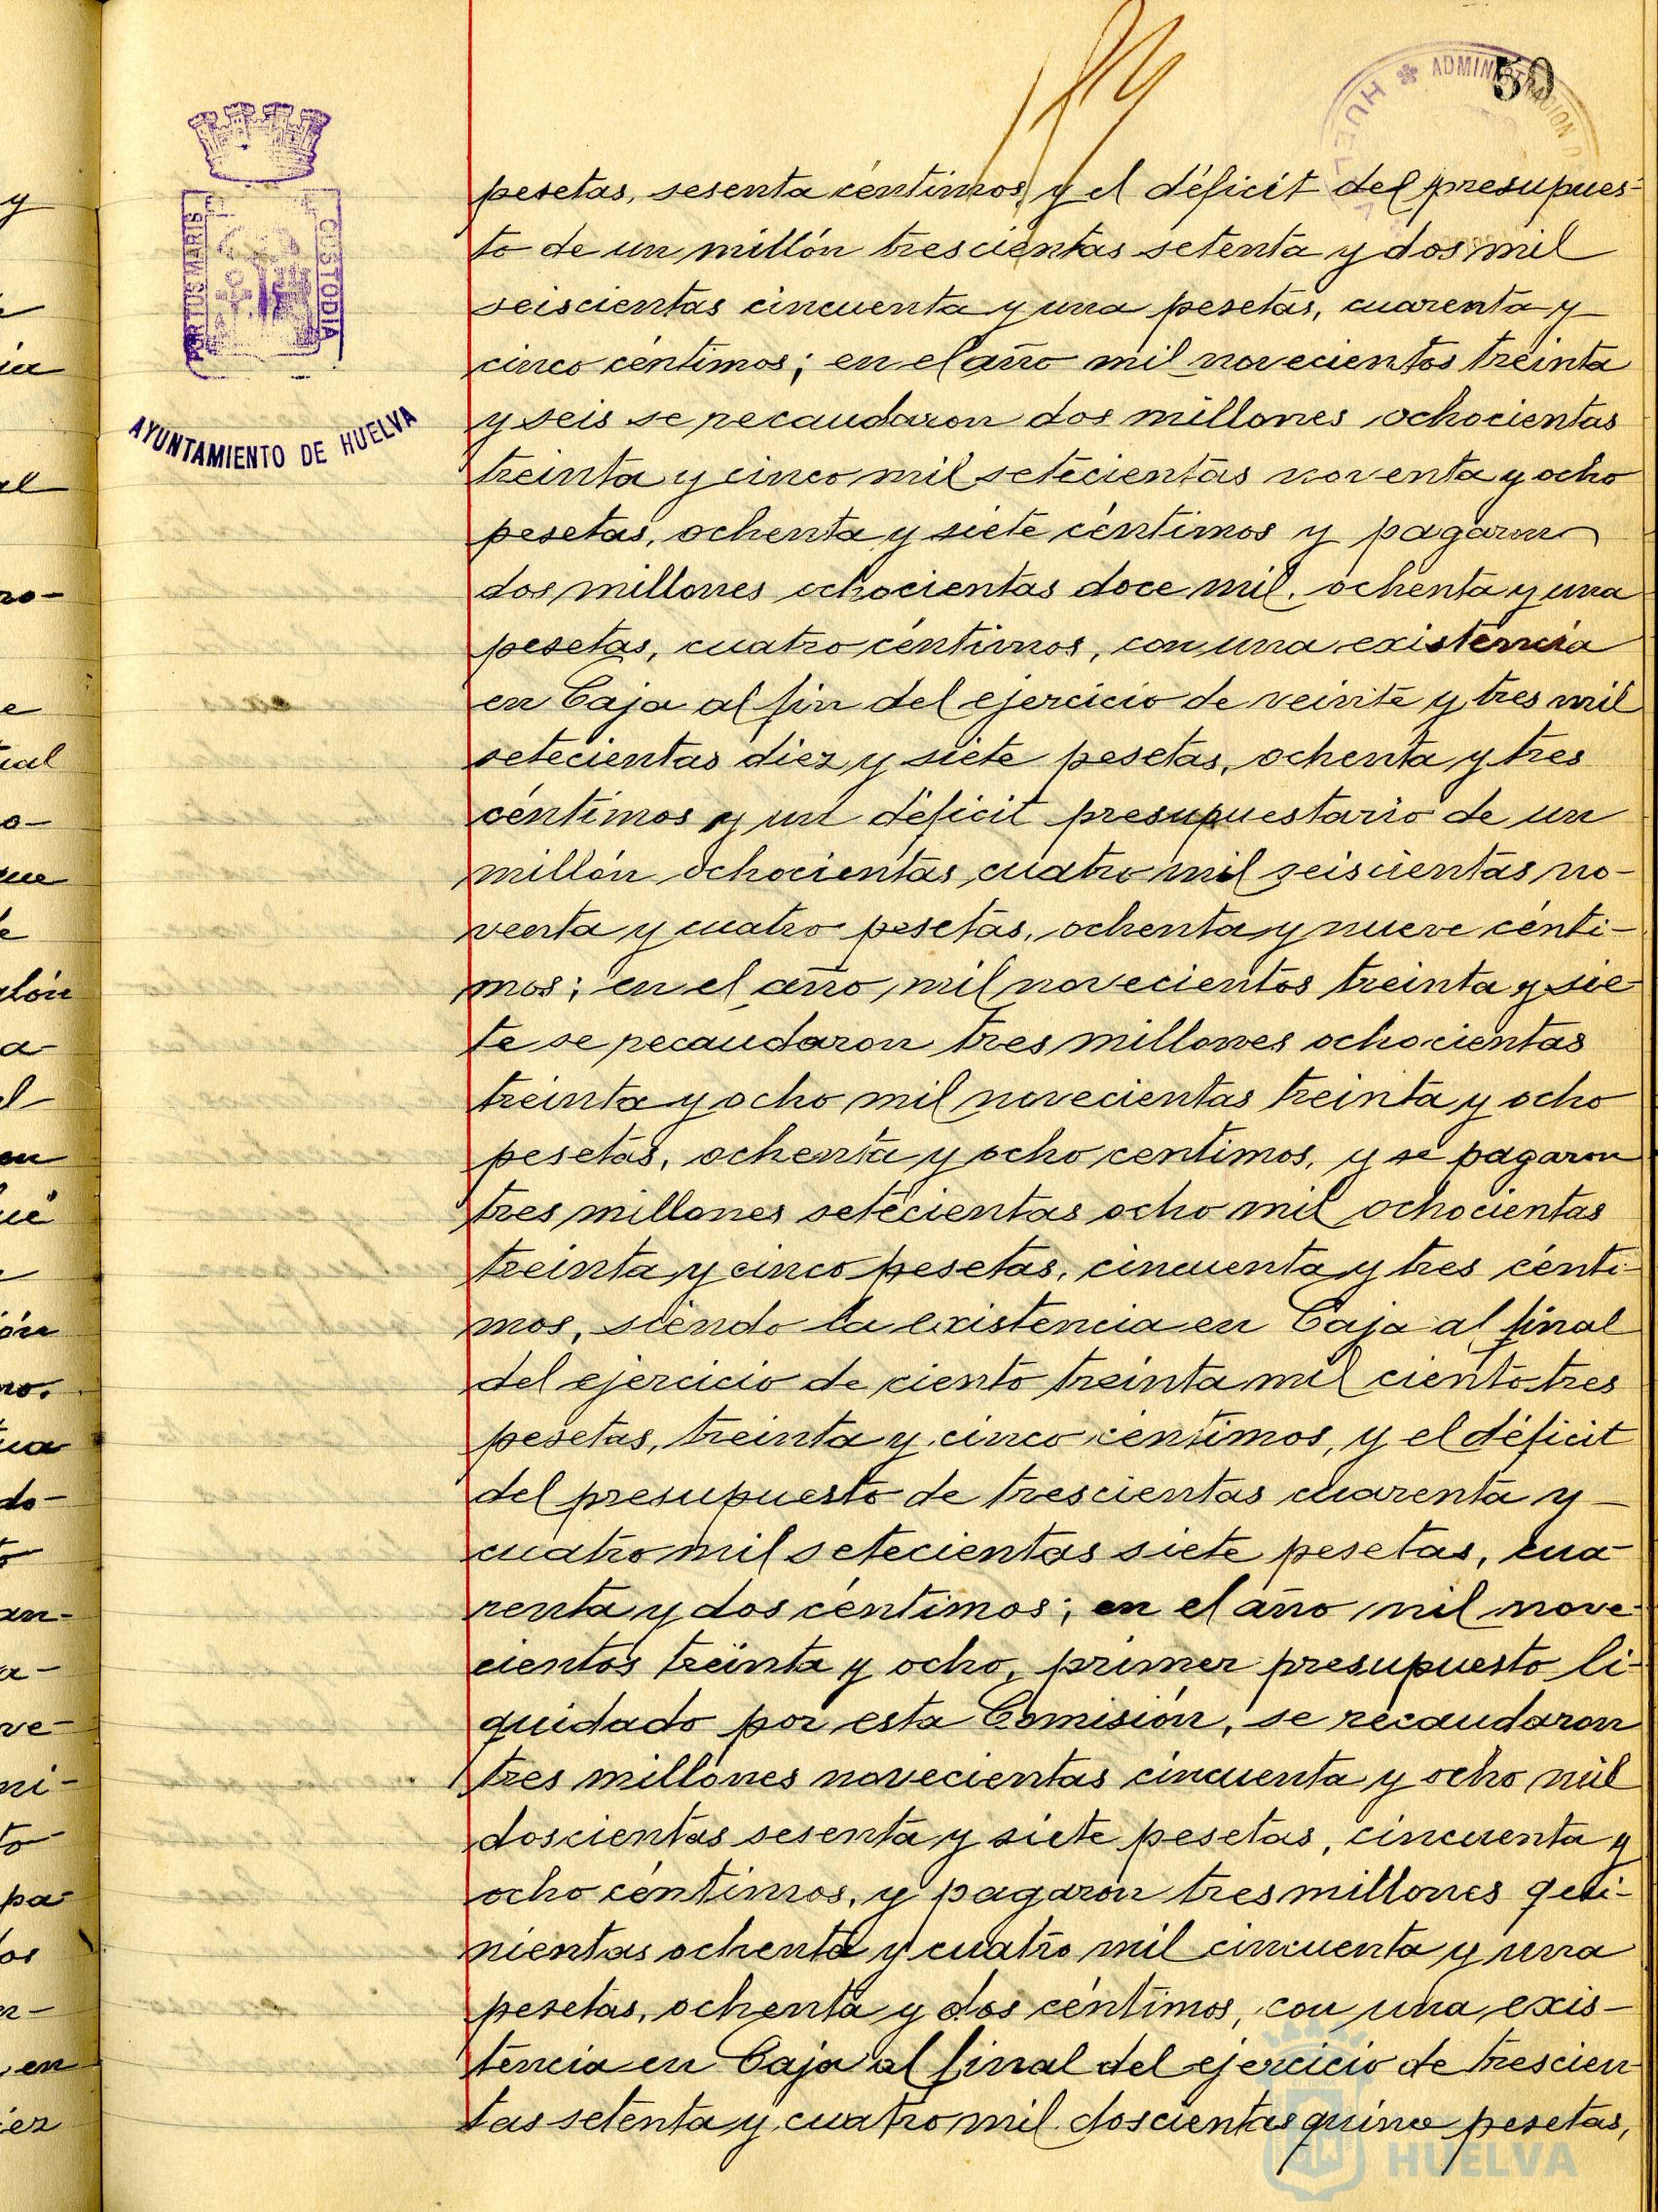 50
HUELVA * ADMINISTRACION D
PORTUS MARIS CUSTODIA
AYUNTAMIENTO DE HUELVA
pesetas, sesenta céntimos y el déficit del presupues-
to de un millón trescientas setenta y dos mil
seiscientas cincuenta y una pesetas, cuarenta y
cinco céntimos; en el año mil novecientos treinta
y seis se recaudaron dos millones ochocientas
treinta y cinco mil setecientas noventa y ocho
pesetas, ochenta y siete céntimos y pagaron
dos millones ochocientas doce mil, ochenta y una
pesetas, cuatro céntimos, con una existencia
en Caja al fin del ejercicio de veinte y tres mil
setecientas diez y siete pesetas, ochenta y tres
céntimos y un déficit presupuestario de un
millón ochocientas cuatro mil seiscientas no-
venta y cuatro pesetas, ochenta y nueve cénti-
mos; en el año mil novecientos treinta y sie-
te se recaudaron tres millones ochocientas
treinta y ocho mil novecientas treinta y ocho
pesetas, ochenta y ocho centimos, y se pagaron
tres millones setecientas ocho mil ochocientas
treinta y cinco pesetas, cincuenta y tres cénti-
mos, siendo la existencia en Caja al final
del ejercicio de ciento treinta mil ciento tres
pesetas, treinta y cinco céntimos, y el déficit
del presupuesto de trescientas cuarenta y
cuatro mil setecientas siete pesetas, cua-
renta y dos céntimos; en el año mil nove-
cientos treinta y ocho, primer presupuesto li-
quidado por esta Comisión, se recaudaron
tres millones novecientas cincuenta y ocho mil
doscientas sesenta y siete pesetas, cincuenta y
ocho céntimos, y pagaron tres millones qui-
nientas ochenta y cuatro mil cincuenta y una
pesetas, ochenta y dos céntimos, con una exis-
tencia en Caja al final del ejercicio de trescien
tas setenta y cuatro mil doscientas quince pesetas,
HUELVA